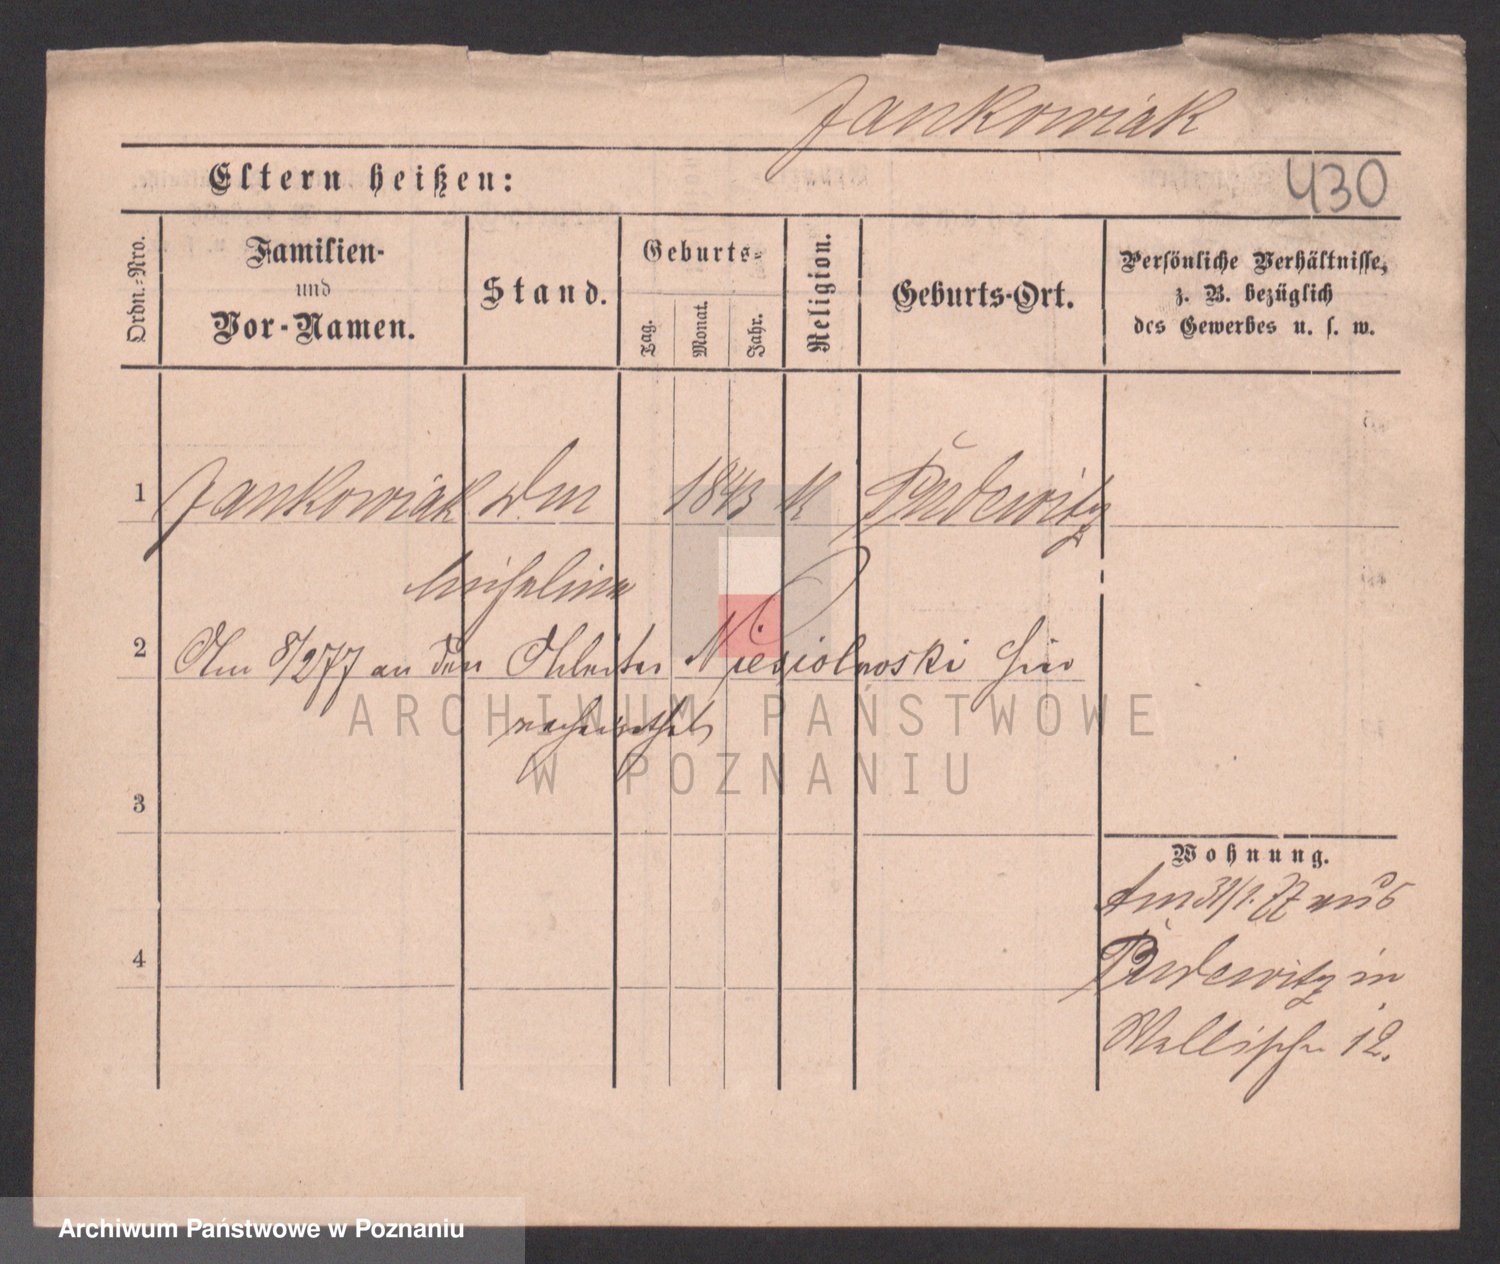 Jankowiak
Eltern heißen:
430
Ordn.-Nro.
Familien-
und
Vor-Namen.
Stand.
Geburts-
Tag.
Monat.
Jahr.
Religion.
Geburts-Ort.
Persönliche Verhältnisse,
z. B. bezüglich
des Gewerbes u. s. w.
1 Jankowiak 1843 K Pudewitz
Michalina
2 Am 8/2 77 an den Arbeiter Niesiolowski hier
verheirathet
ARCHIWUM PAŃSTWOWE
W POZNANIU
3
Wohnung.
Am 31/1. 77 aus
4
Pudewitz in
Wallischei 12.
Archiwum Państwowe w Poznaniu